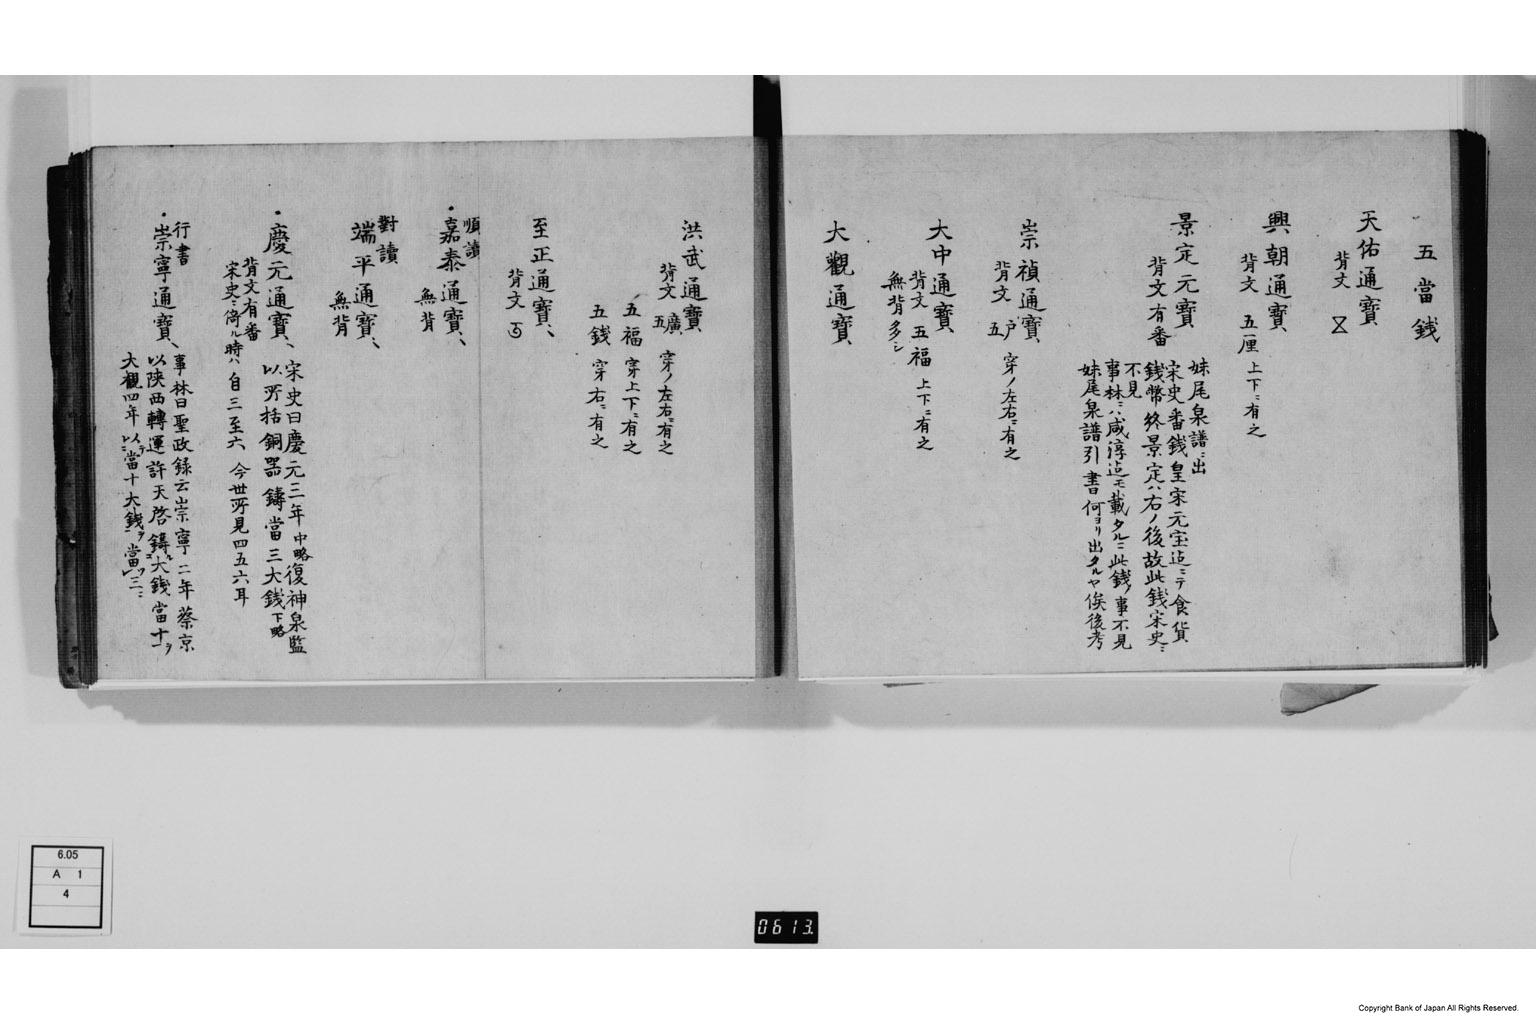 五當銭
天佑通寳
背文 㐅
興朝通寳
背文 五厘 上下ニ有之
景定元寳
背文有番
妹尾泉譜ニ出
宋史番銭皇宋元宝迠ニテ食貨
銭幣終景定ハ右ノ後故此銭宋史ニ
不見
事林ニハ咸淳迠モ載タルニ此銭ノ事不見
妹尾泉譜引書何ヨリ出タルヤ俟後考
崇禎通寳
背文 戸五 穿ノ左右ニ有之
大中通寳
背文 五福 上下ニ有之
無背多シ
大觀通寳
洪武通寳
背文 五廣 穿ノ左右ニ有之
五福 穿上下ニ有之
五銭 穿右ニ有之
至正通寳
背文
順讀
嘉泰通寳
無背
對讀
端平通寳
無背
慶元通寳
背文有番
宋史曰慶元三年中略復神泉監
以所括銅器鑄當三大銭下略
宋史ニ倚ル時ハ自三至六 今世所見四五六耳
行書
崇寧通寳
事林曰聖政録云崇寧二年蔡京
以陝西轉運許天啓鑄大銭當十ヲ
大觀四年以當十大銭ヲ當三ニ
6.05
A 1
4
0613.
Copyright Bank of Japan All Rights Reserved.